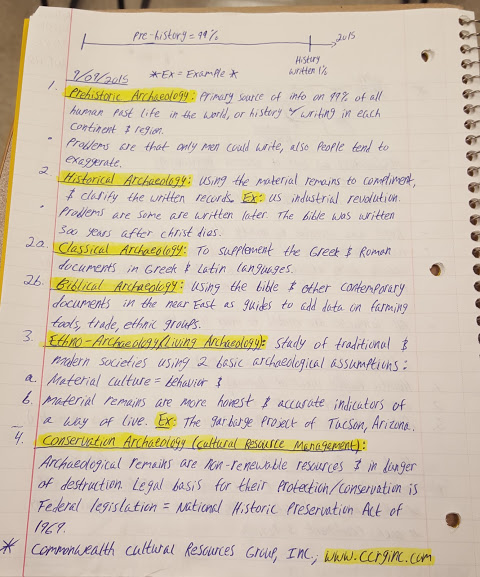 Pre-history = 99%
2015
History
written 1%
9/09/2015 *Ex = Example *
1. Prehistoric Archaeology: Primary source of info on 99% of all
human past life in the world, or history & writing in each
continent & region.
• Problems are that only men could write, also people tend to
exaggerate.
2. Historical Archaeology: Using the material remains to compliment,
& clarify the written records. Ex: US industrial revolution.
• Problems are some are written later. The bible was written
300 years after christ dias.
2a. Classical Archaeology: To supplement the Greek & Roman
documents in Greek & Latin languages.
2b. Biblical Archaeology: Using the bible & other contemporary
documents in the near East as guides to add data on farming
tools, trade, ethnic groups.
3. Ethno-Archaeology(Living Archaeology): Study of traditional &
modern societies using 2 basic archaeological assumptions:
a. Material culture = behavior &
b. Material remains are more honest & accurate indicators of
a way of live. Ex: The garbarge Project of Tucson, Arizona.
4. Conservation Archaeology (Cultural Resource Management):
Archaeological remains are non-renewable resources & in danger
of destruction. Legal basis for their Protection/conservation is
Federal legislation = National Historic Preservation Act of
1969.
* Commonwealth Cultural Resources Group, Inc; www.ccrginc.com